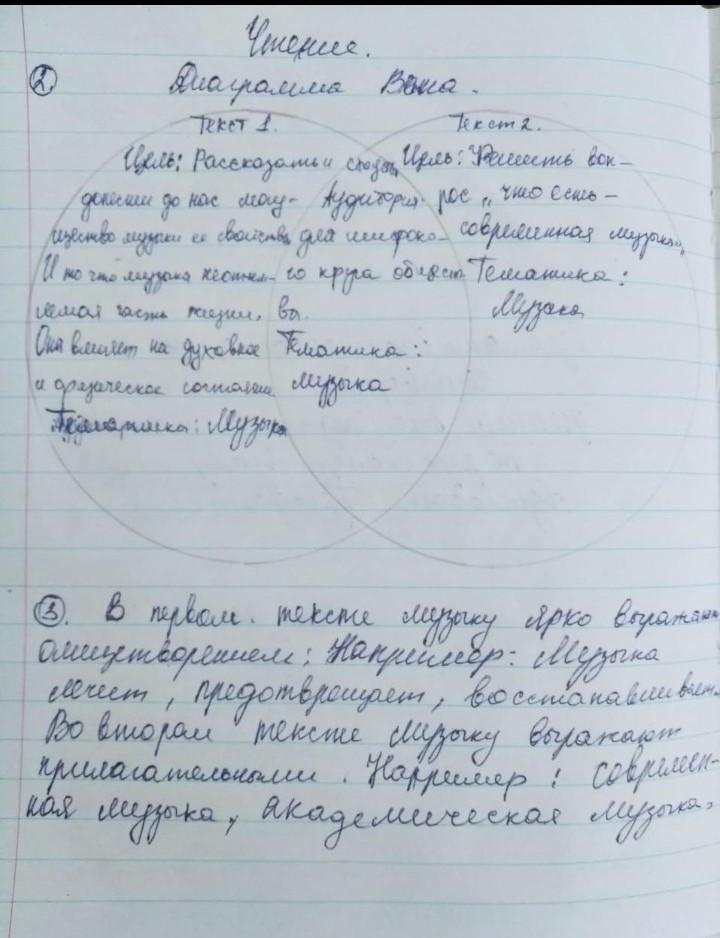 Чтение.
2. Диаграмма Вена.
Текст 1.
Цель: Рассказать и
донести до нас могу-
щество музыки ее свойства
И то что музыка неотъем-
лемая часть жизни.
Она влияет на духовное
и физическое состояние
Музыка
Аудитория
для широко-
го круга общест
ва.
Тематика:
Музыка
Текст 2.
Цель: Решить воп-
рос "что есть-
современная музыка"
Тематика:
Музыка
3. В первом тексте музыку ярко выражают
олицетворением: Например: Музыка
лечит, предотвращает, восстанавливает.
Во втором тексте музыку выражают
прилагательными. Например: современ-
ная музыка, академическая музыка.